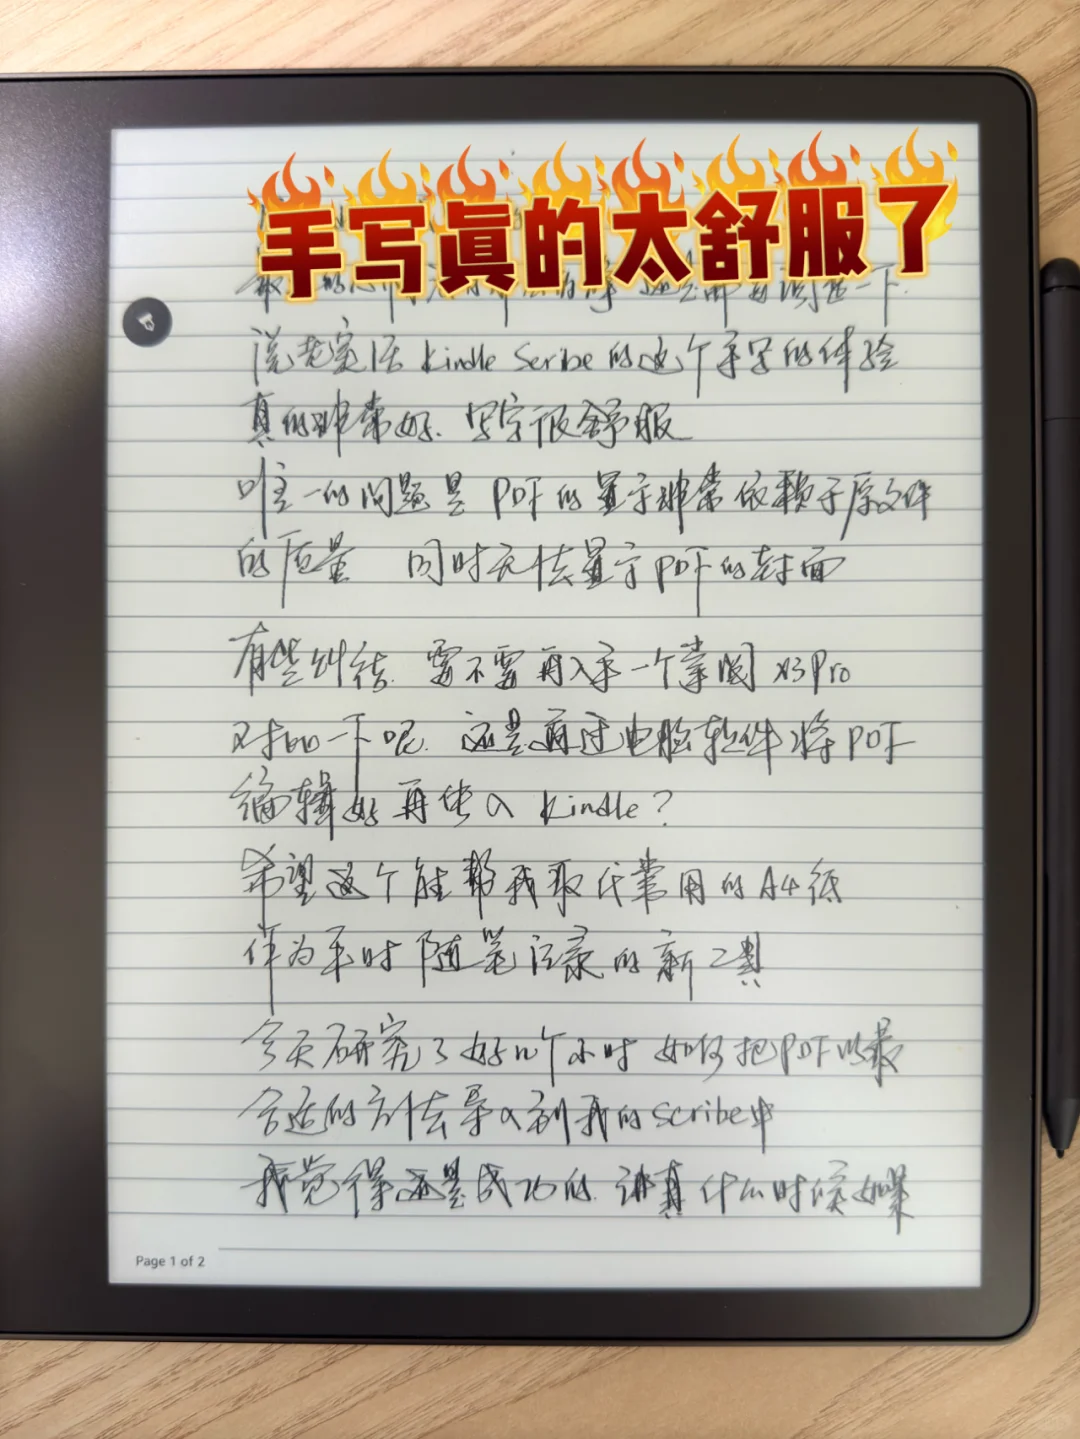 手写真的太舒服了
一下.
说老实话 Kindle Scribe的这个手写的体验
真的非常好. 写字很舒服
唯一的问题是 PDF的显示非常依赖于原文件
的质量 同时无法显示PDF的封面
有些纠结. 需不需再入手一个掌阅 X3Pro
对比一下呢. 还是再过电脑软件将PDF
编辑好再传入 Kindle?
希望这个能帮我取代常用的A4纸
作为平时随笔记录的新工具
今天研究了好几个小时 如何把PDF以最
合适的方法导入到我的Scribe中
我觉得还是成功的. 讲真 什么时候如果
Page 1 of 2